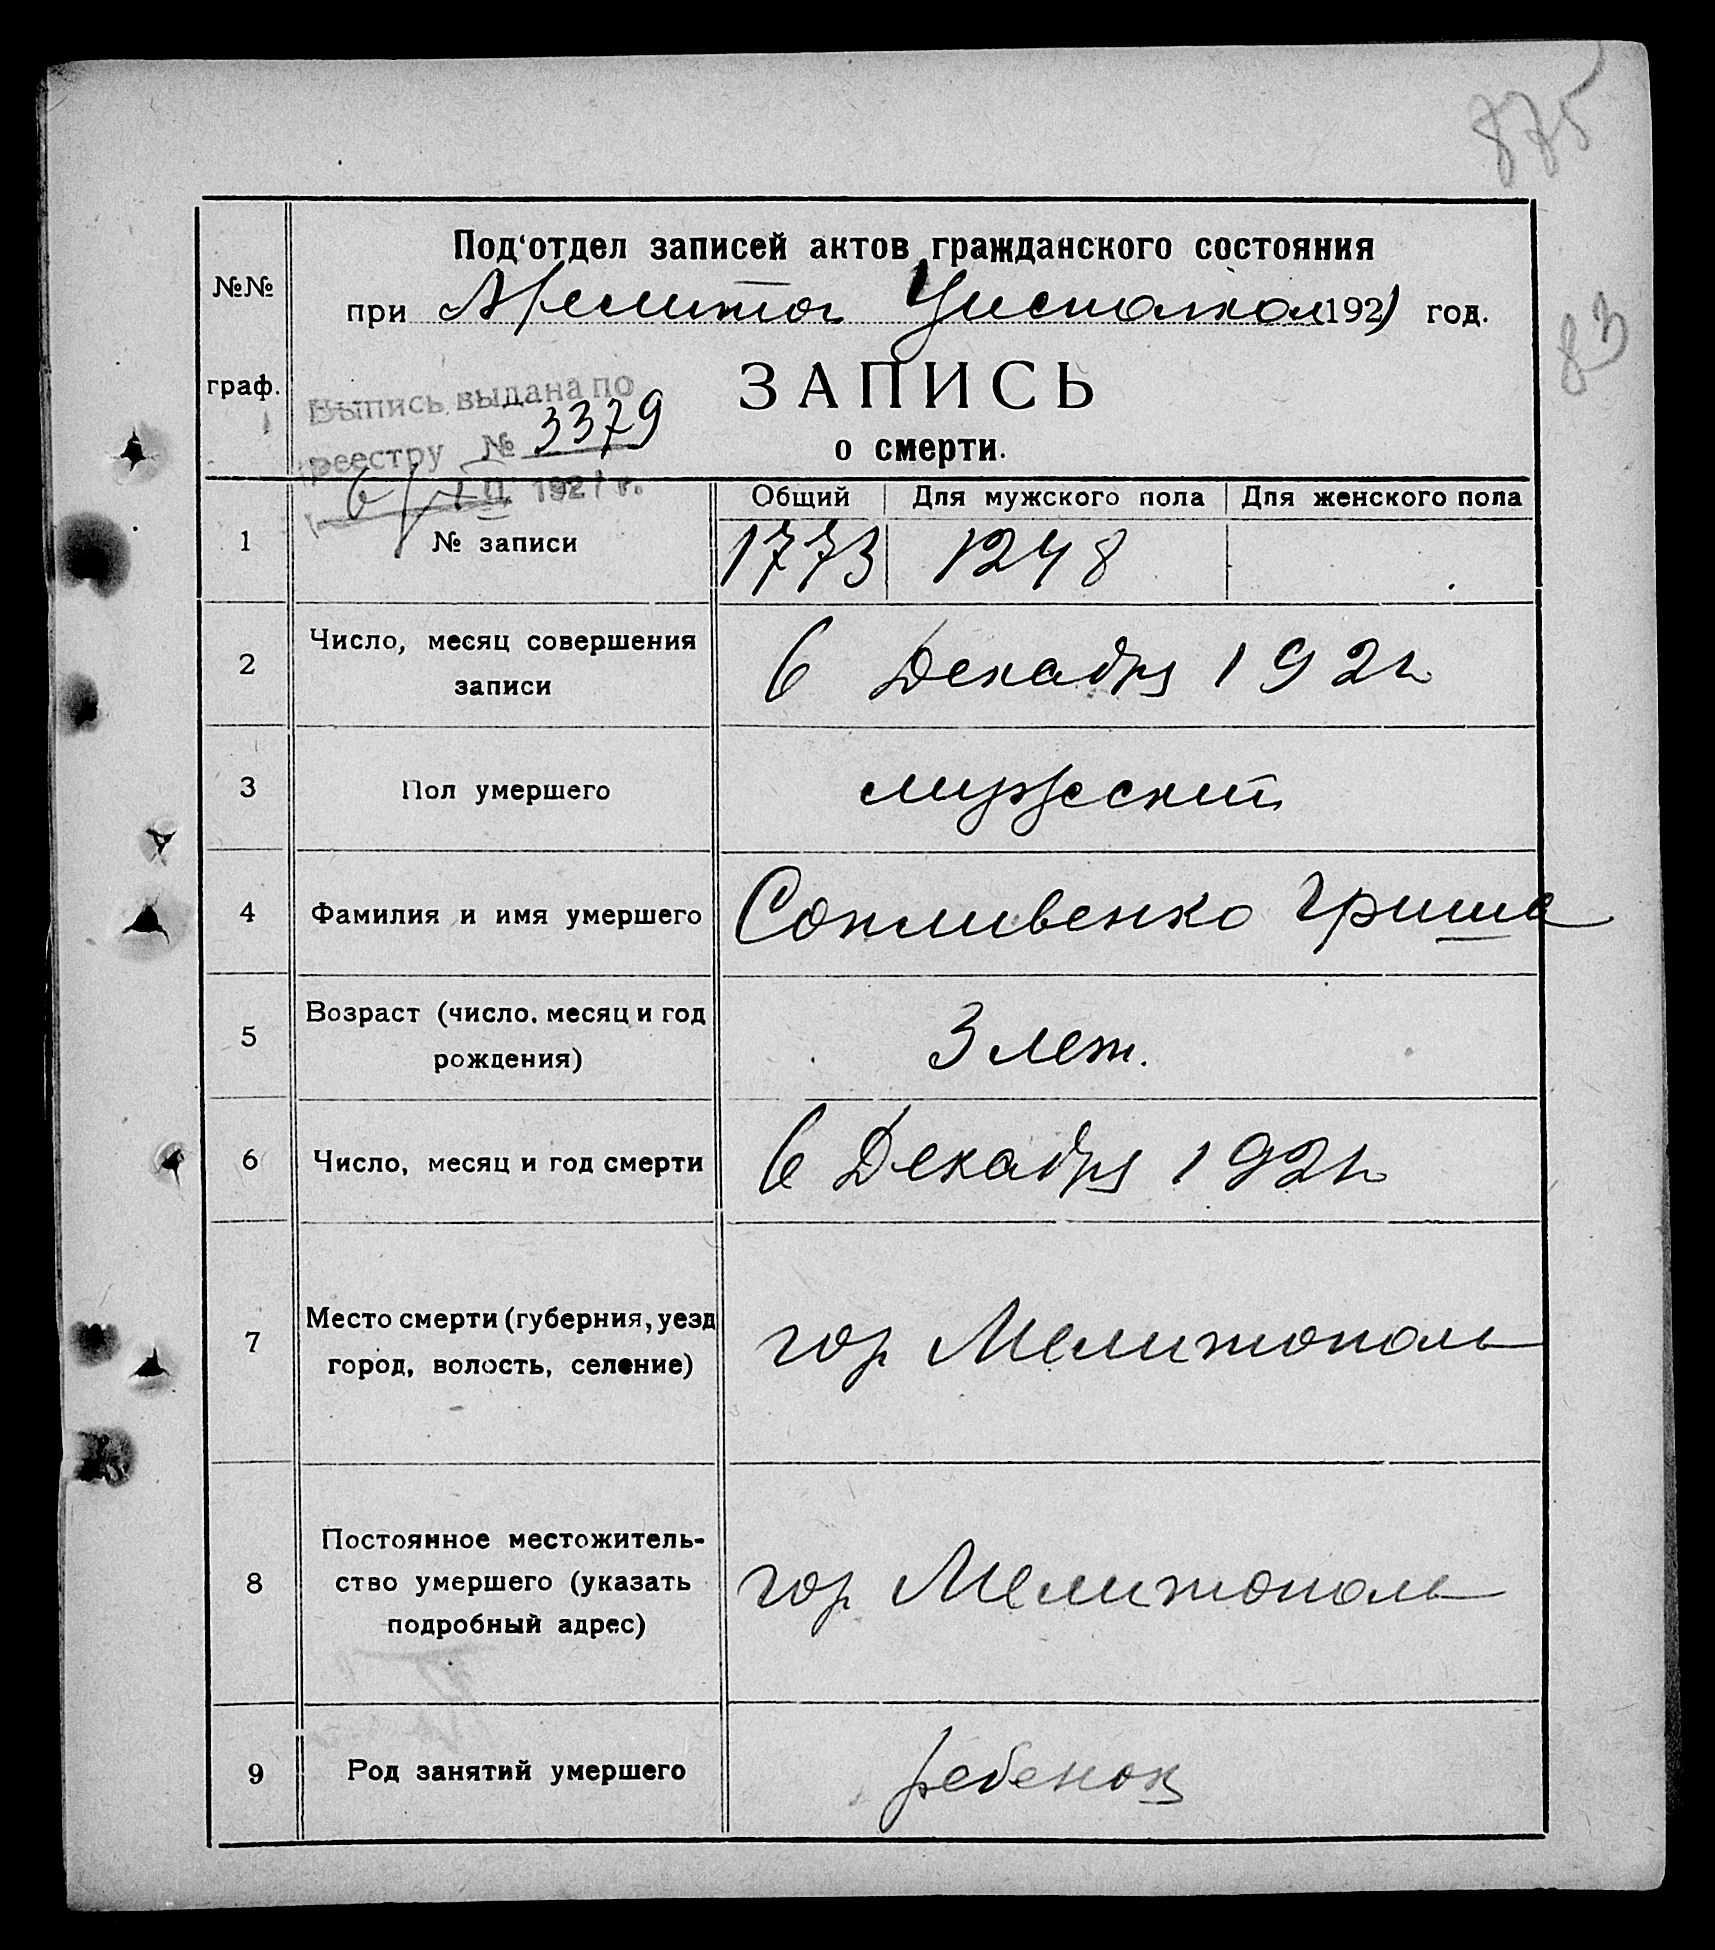 875
83
№№
граф.
Под‘отдел записей актов гражданского состояния
при Мелитоп Уисполком 1921 год.
ЗАПИСЬ
о смерти.
Выпись выдана по
реестру № 3379
6/XII 1921 г.
Общий Для мужского пола Для женского пола
1 № записи 1773 1248
2 Число, месяц совершения
записи
6 Декабря 1921
3 Пол умершего мужеский
4 Фамилия и имя умершего Сопливенко Гриша
5 Возраст (число, месяц и год
рождения)
3 лет.
6 Число, месяц и год смерти 6 Декабря 1921
7 Место смерти (губерния, уезд
город, волость, селение)
гор Мелитополь
8 Постоянное местожитель-
ство умершего (указать
подробный адрес)
гор Мелитополь
9 Род занятий умершего ребенок